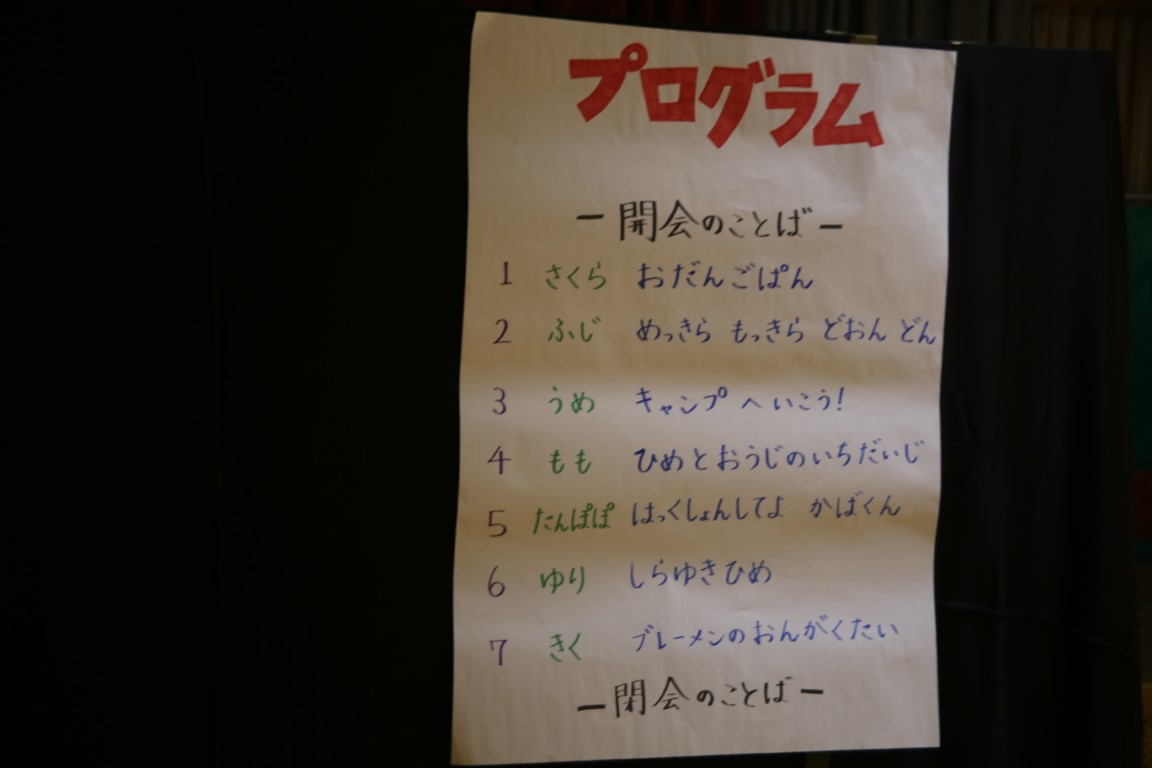 プログラム
ー開会のことばー
1 さくら おだんごぱん
2 ふじ めっきら もっきら どおん どん
3 うめ キャンプ へ いこう!
4 もも ひめとおうじのいちだいじ
5 たんぽぽ はっくしょんしてよ かばくん
6 ゆり しらゆきひめ
7 きく ブレーメンのおんがくたい
ー閉会のことばー